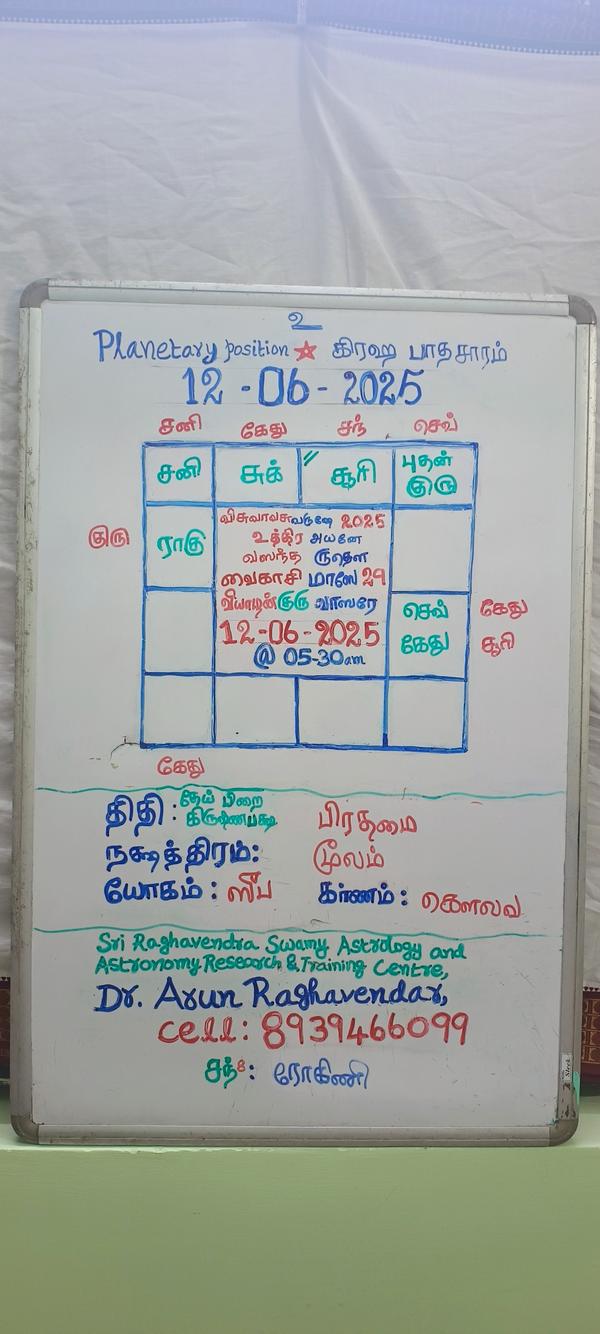 உ
Planetary position ★ கிரஹ பாதசாரம்
12 - 06 - 2025
சனி கேது சந் செவ்
சனி சுக் // சூரி புதன் குரு
குரு ராகு
விசுவாவசுவருஷே 2025
உத்திர அயனே
வஸந்த ருதௌ
வைகாசி மாஸே 29
வியாழன் குரு வாஸரே
12-06-2025
@ 05-30am
செவ் கேது
கேது சூரி
கேது
திதி : தேய் பிறை கிருஷ்ணபக்ஷ பிரதமை
நக்ஷத்திரம்: மூலம்
யோகம் : ஸுப கர்ணம் : கௌலவ
Sri Raghavendra Swamy Astrology and
Astronomy Research & Training Centre,
Dr. Arun Raghavendar,
cell: 8939466099
சந்8: ரோகிணி